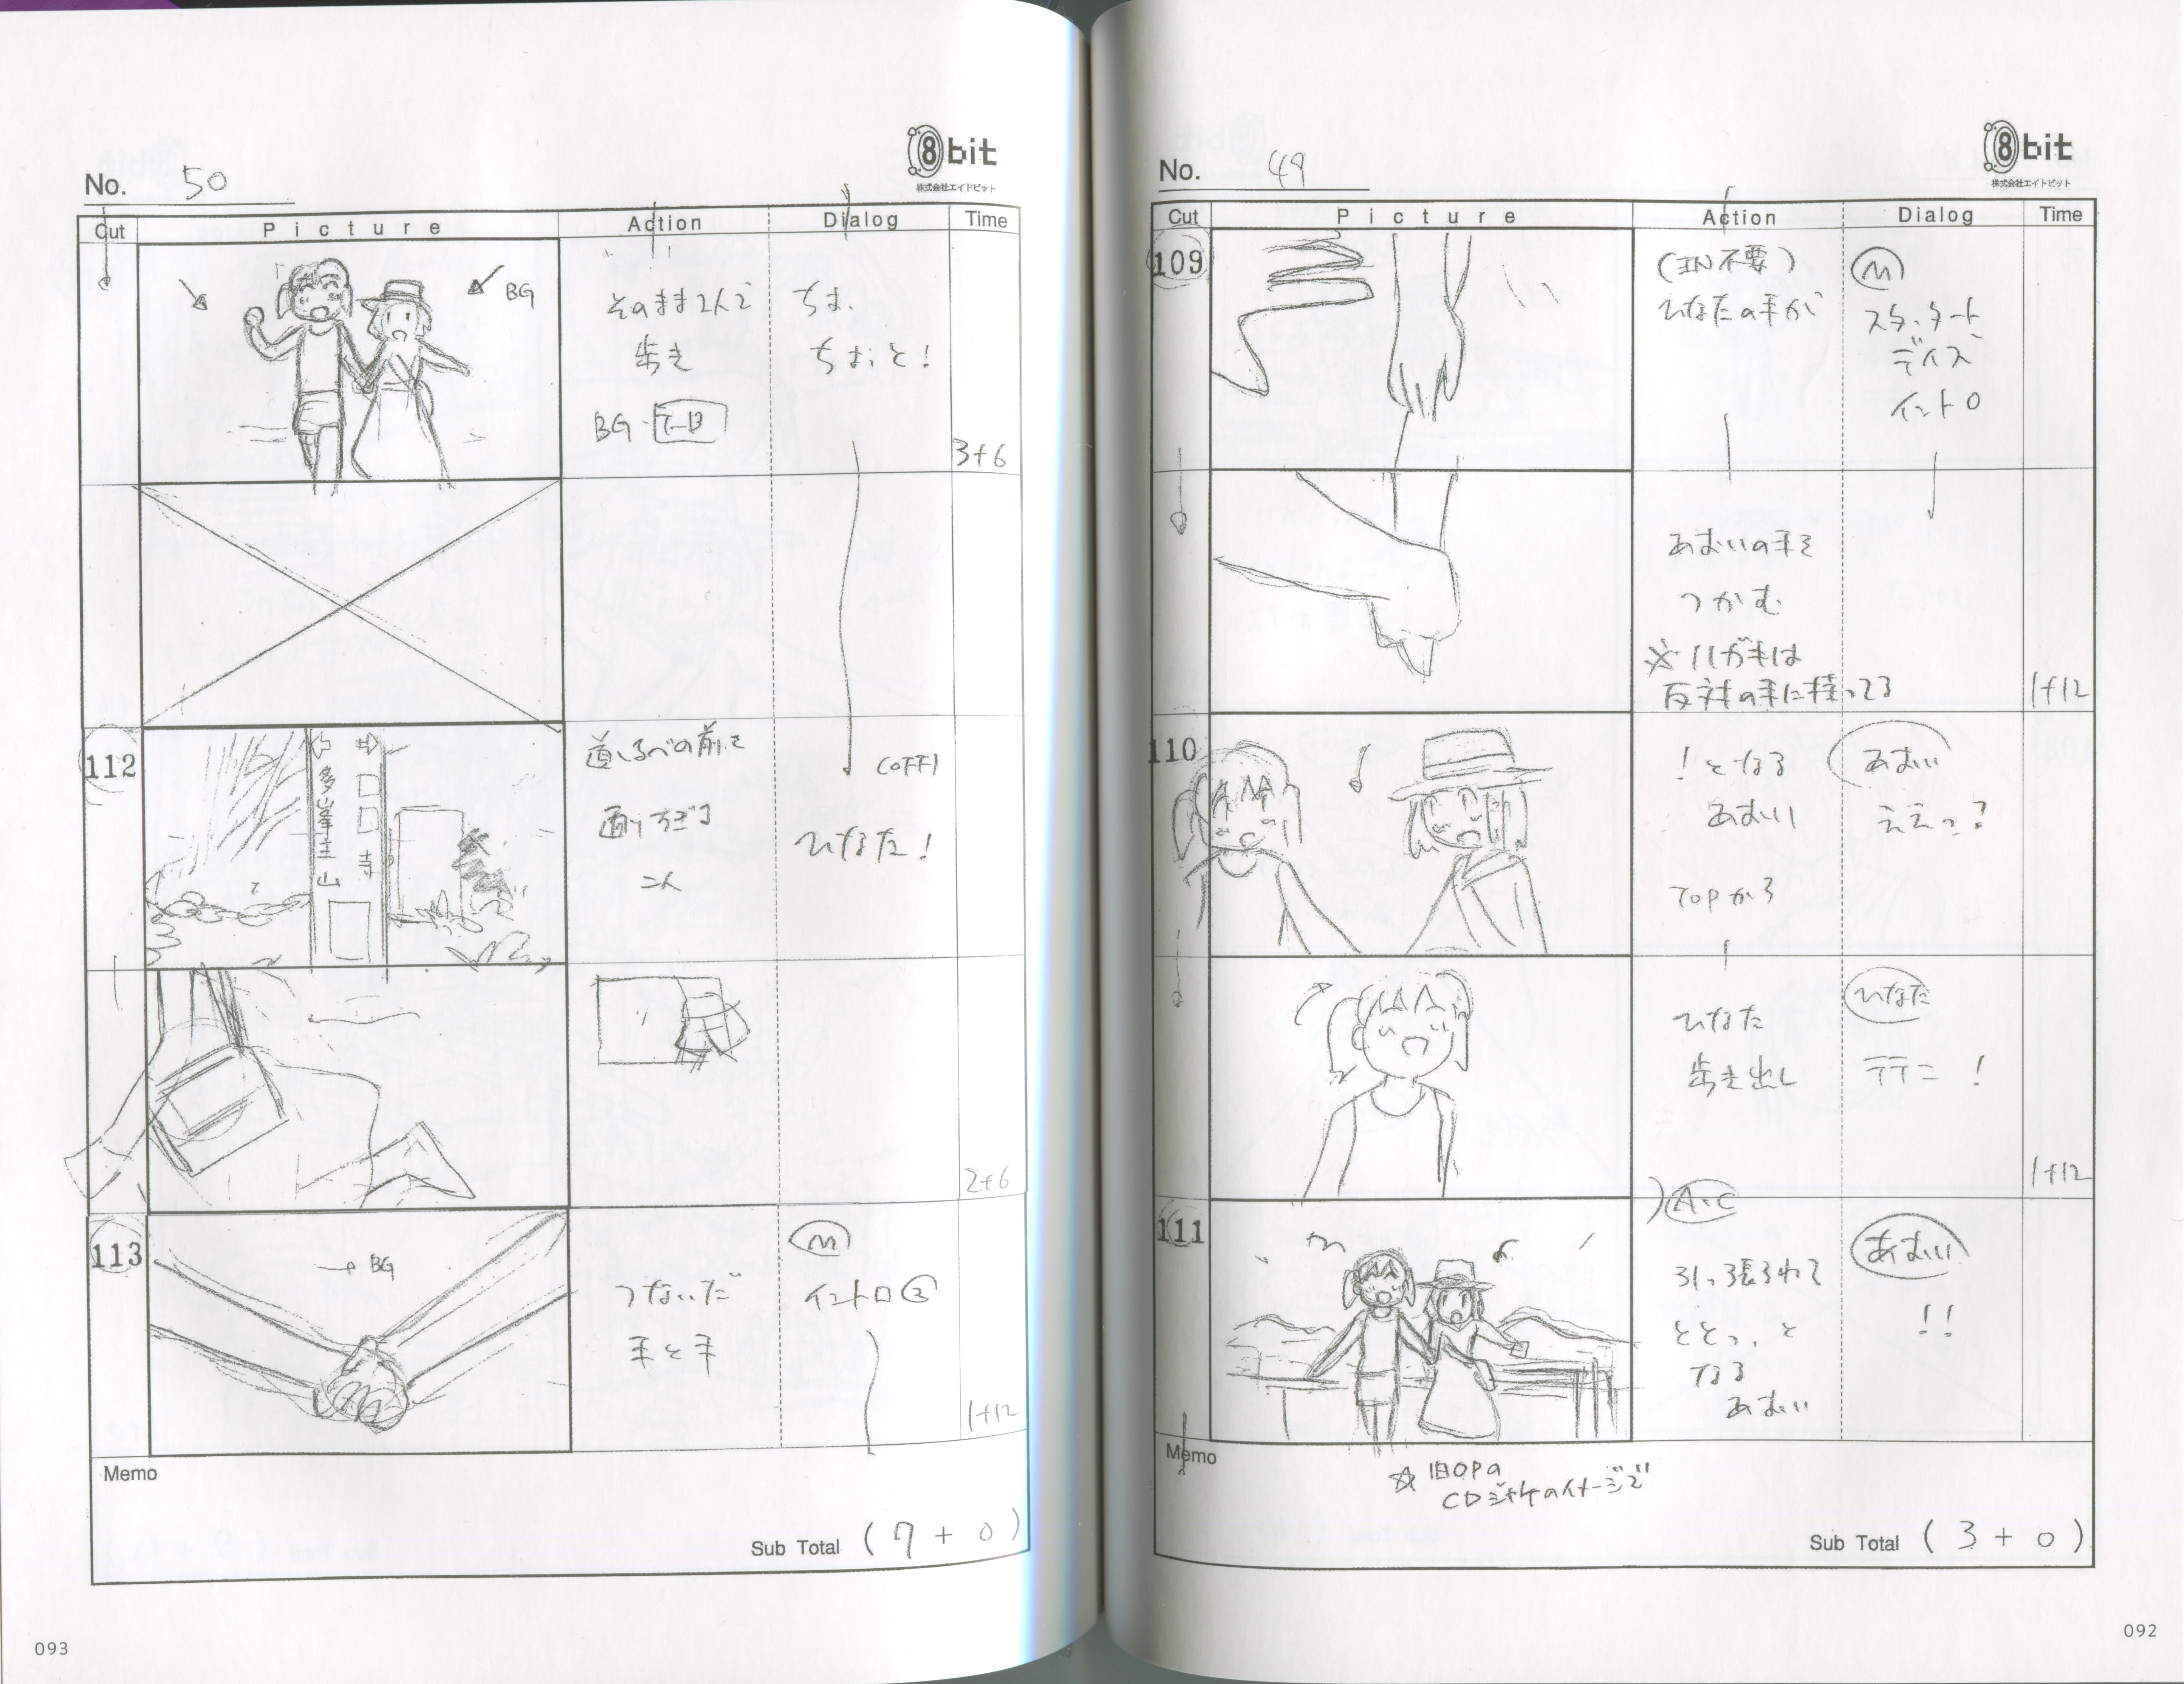 No. 49
8bit
株式会社エイトビット
Cut Picture Action Dialog Time
109
(IN不要)
ひなたの手が
M
スタート
ディズ
イントロ
あおいの手を
つかむ
※ハガキは
反対の手に持ってる
1+12
110
!となる
あおい
TOPから
あおい
ええっ?
ひなた
歩き出し
ひなた
テテニ!
1+12
111
A・C
引っ張られて
ととっ、と
なる
あおい
あおい
!!
Memo
☆旧OPの
CDジャケのイメージで
Sub Total (3+0)
092
No. 50
8bit
株式会社エイトビット
Cut Picture Action Dialog Time
BG
そのまま2人で
歩き
BG
ちょ、
ちょっと!
3+6
112
多峯主山
寺
道しるべの前を
通りすぎる
二人
(OFF)
ひなた!
2+6
113
→BG
つないだ
手と手
M
イントロ②
1+12
Memo
Sub Total (7+0)
093